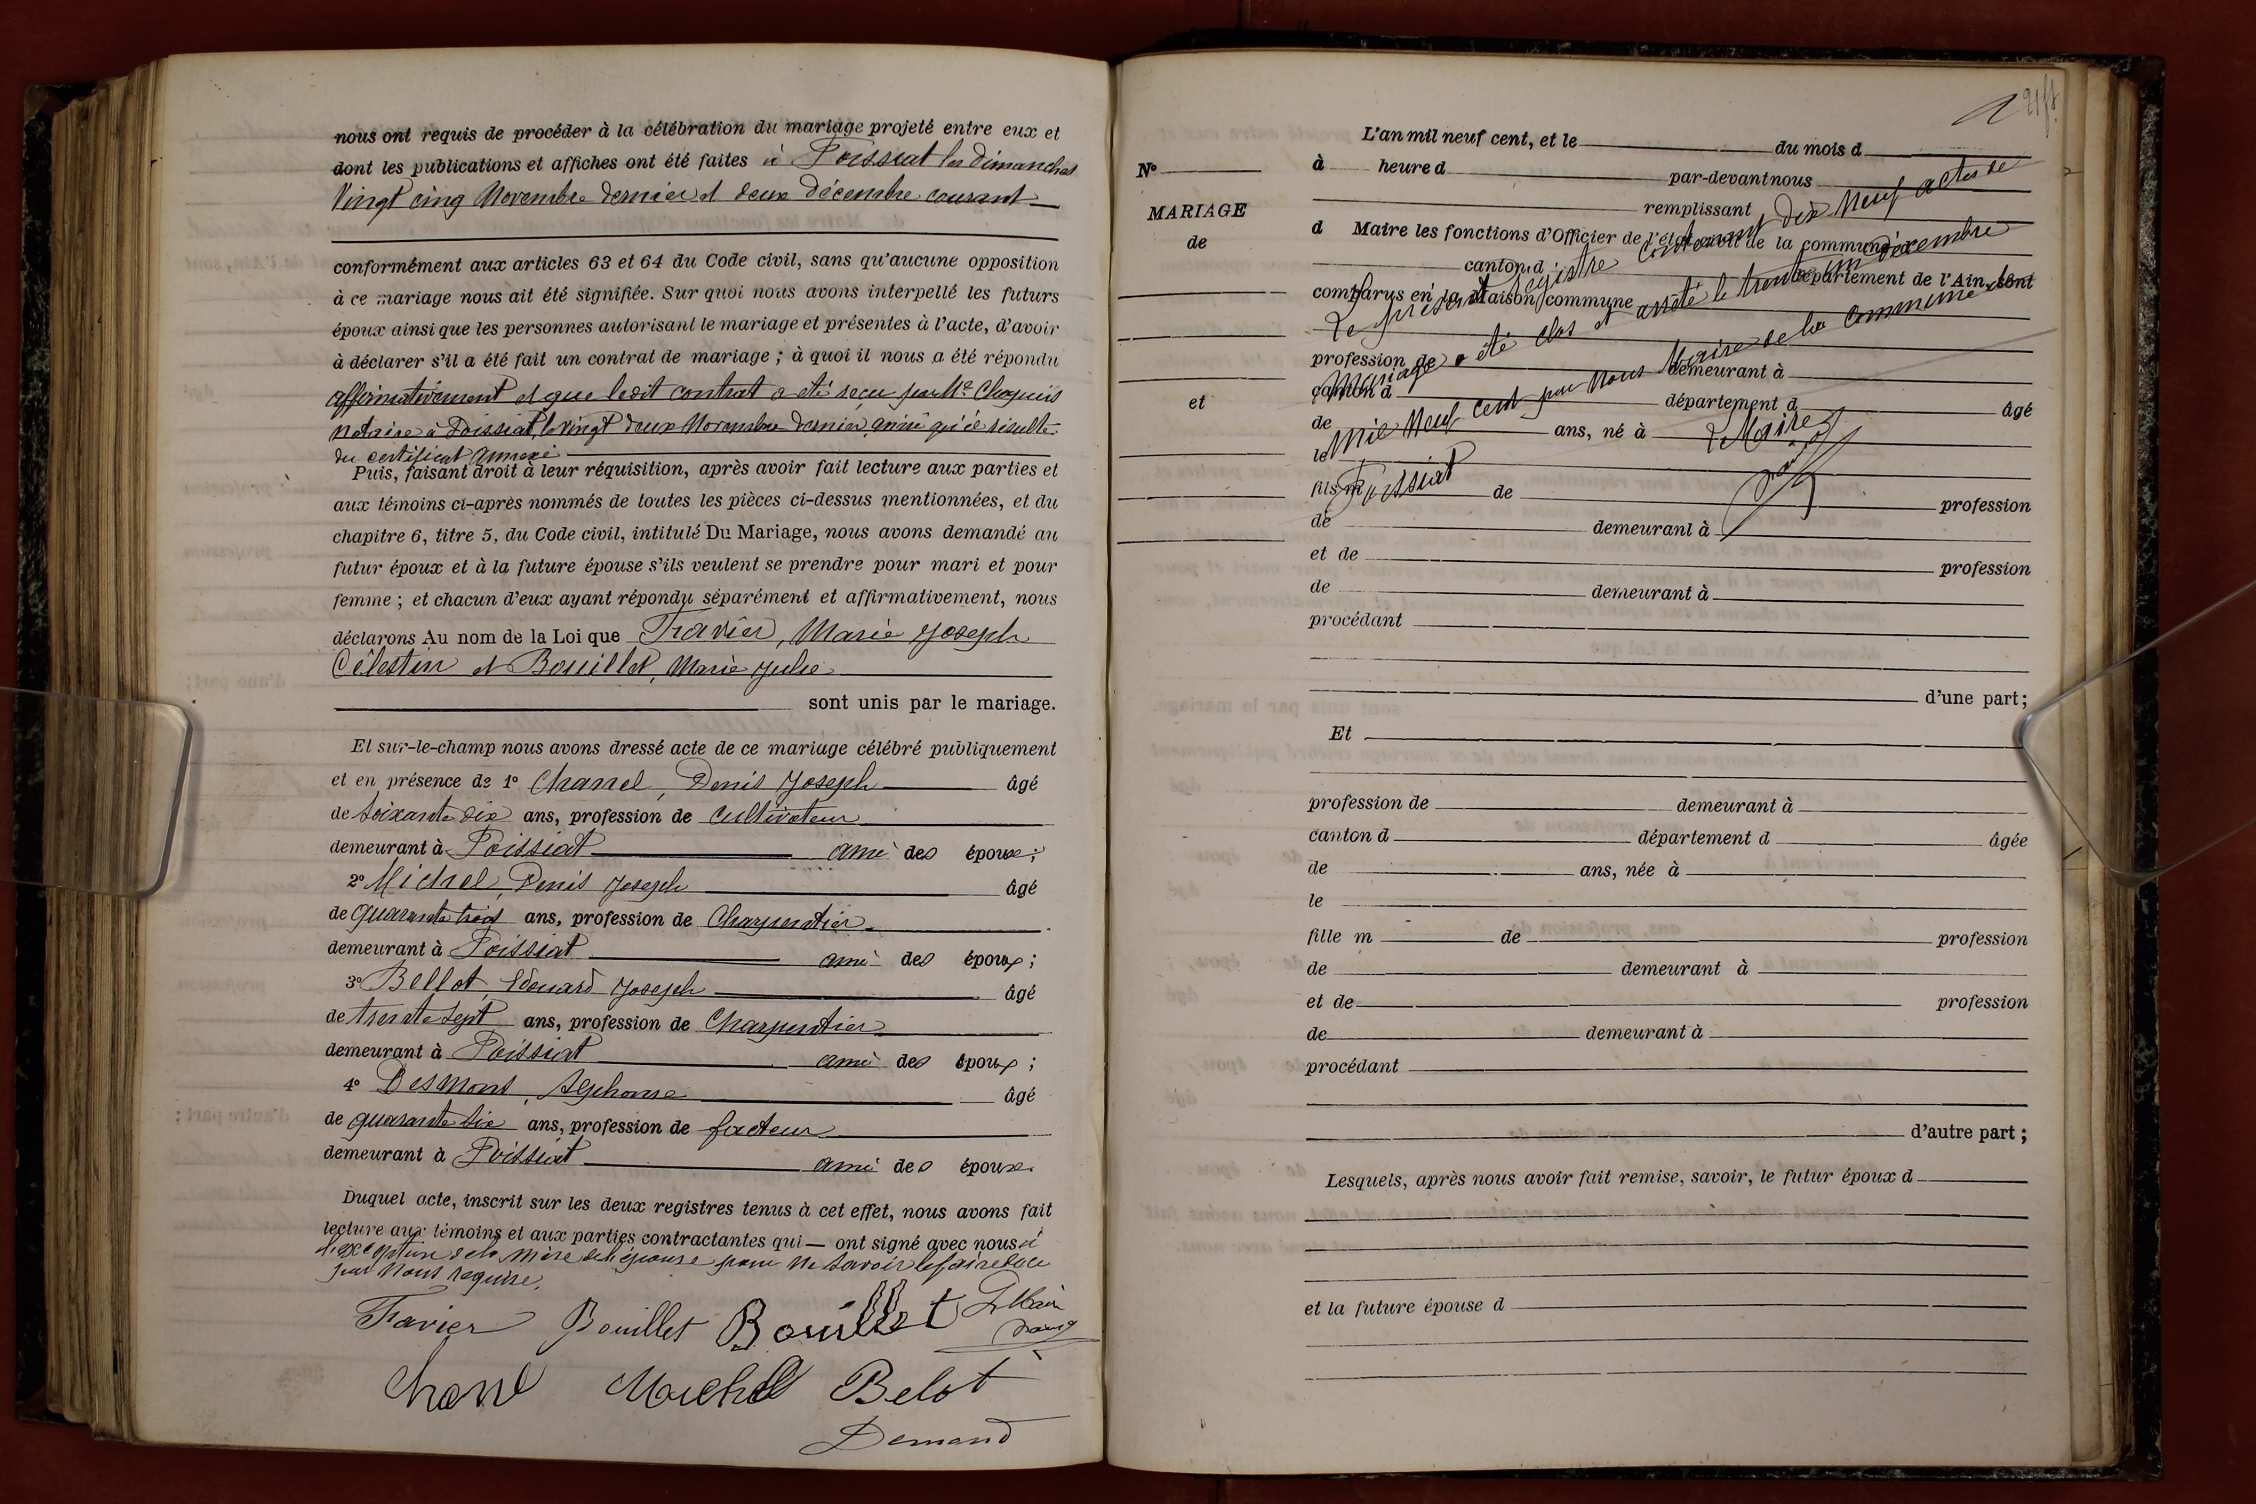 nous ont requis de procéder à la célébration du mariage projeté entre eux et
dont les publications et affiches ont été faites à Poissiat les Dimanches
Vingt cinq Novembre dernier et deux décembre courant
conformément aux articles 63 et 64 du Code civil, sans qu'aucune opposition
à ce mariage nous ait été signifiée. Sur quoi nous avons interpellé les futurs
époux ainsi que les personnes autorisant le mariage et présentes à l'acte, d'avoir
à déclarer s'il a été fait un contrat de mariage ; à quoi il nous a été répondu
affirmativement et que ledit contrat a été reçu par Me Chapuis
notaire à Poissiat, le vingt deux Novembre dernier, ainsi qu'il résulte
du certificat annexé
Puis, faisant droit à leur réquisition, après avoir fait lecture aux parties et
aux témoins ci-après nommés de toutes les pièces ci-dessus mentionnées, et du
chapitre 6, titre 5, du Code civil, intitulé Du Mariage, nous avons demandé au
futur époux et à la future épouse s'ils veulent se prendre pour mari et pour
femme ; et chacun d'eux ayant répondu séparément et affirmativement, nous
déclarons Au nom de la Loi que Travier, Marie Joseph
Célestin et Bouillet, Marie Julie
sont unis par le mariage.
Et sur-le-champ nous avons dressé acte de ce mariage célébré publiquement
et en présence de 1o Chanel, Denis Joseph âgé
de soixante dix ans, profession de cultivateur
demeurant à Poissiat ami des époux ;
2o Michel, Denis Joseph âgé
de quarante trois ans, profession de Charpentier
demeurant à Poissiat ami des époux ;
3o Bellot, Edouard Joseph âgé
de trente sept ans, profession de Charpentier
demeurant à Poissiat ami des époux ;
4o Desmons, Alphonse âgé
de quarante six ans, profession de facteur
demeurant à Poissiat ami des époux.
Duquel acte, inscrit sur les deux registres tenus à cet effet, nous avons fait
lecture aux témoins et aux parties contractantes qui — ont signé avec nous à
l'exception de la mère de l'épouse pour ne savoir le faire de ce
par nous requise.
Travier Bouillet Bouillet Le Maire
Chanel Michel Belot
Demond
No
MARIAGE
de
et
L'an mil neuf cent, et le du mois d
à heure d par-devant nous
remplissant
d Maire les fonctions d'Officier de l'état civil de la commune
canton d département de l'Ain, sont
comparus en la Maison commune
Le présent registre contenant dix neuf actes de
mariage a été clos et arrêté le trente un décembre
mil neuf cent par nous Maire de la commune de
Poissiat
Le Maire
profession de demeurant à
canton d département d âgé
de ans, né à
le
fils m de profession
de demeurant à
et de profession
de demeurant à
procédant
d'une part ;
Et
profession de demeurant à
canton d département d âgée
de ans, née à
le
fille m de profession
de demeurant à
et de profession
de demeurant à
procédant
d'autre part ;
Lesquels, après nous avoir fait remise, savoir, le futur époux d
et la future épouse d